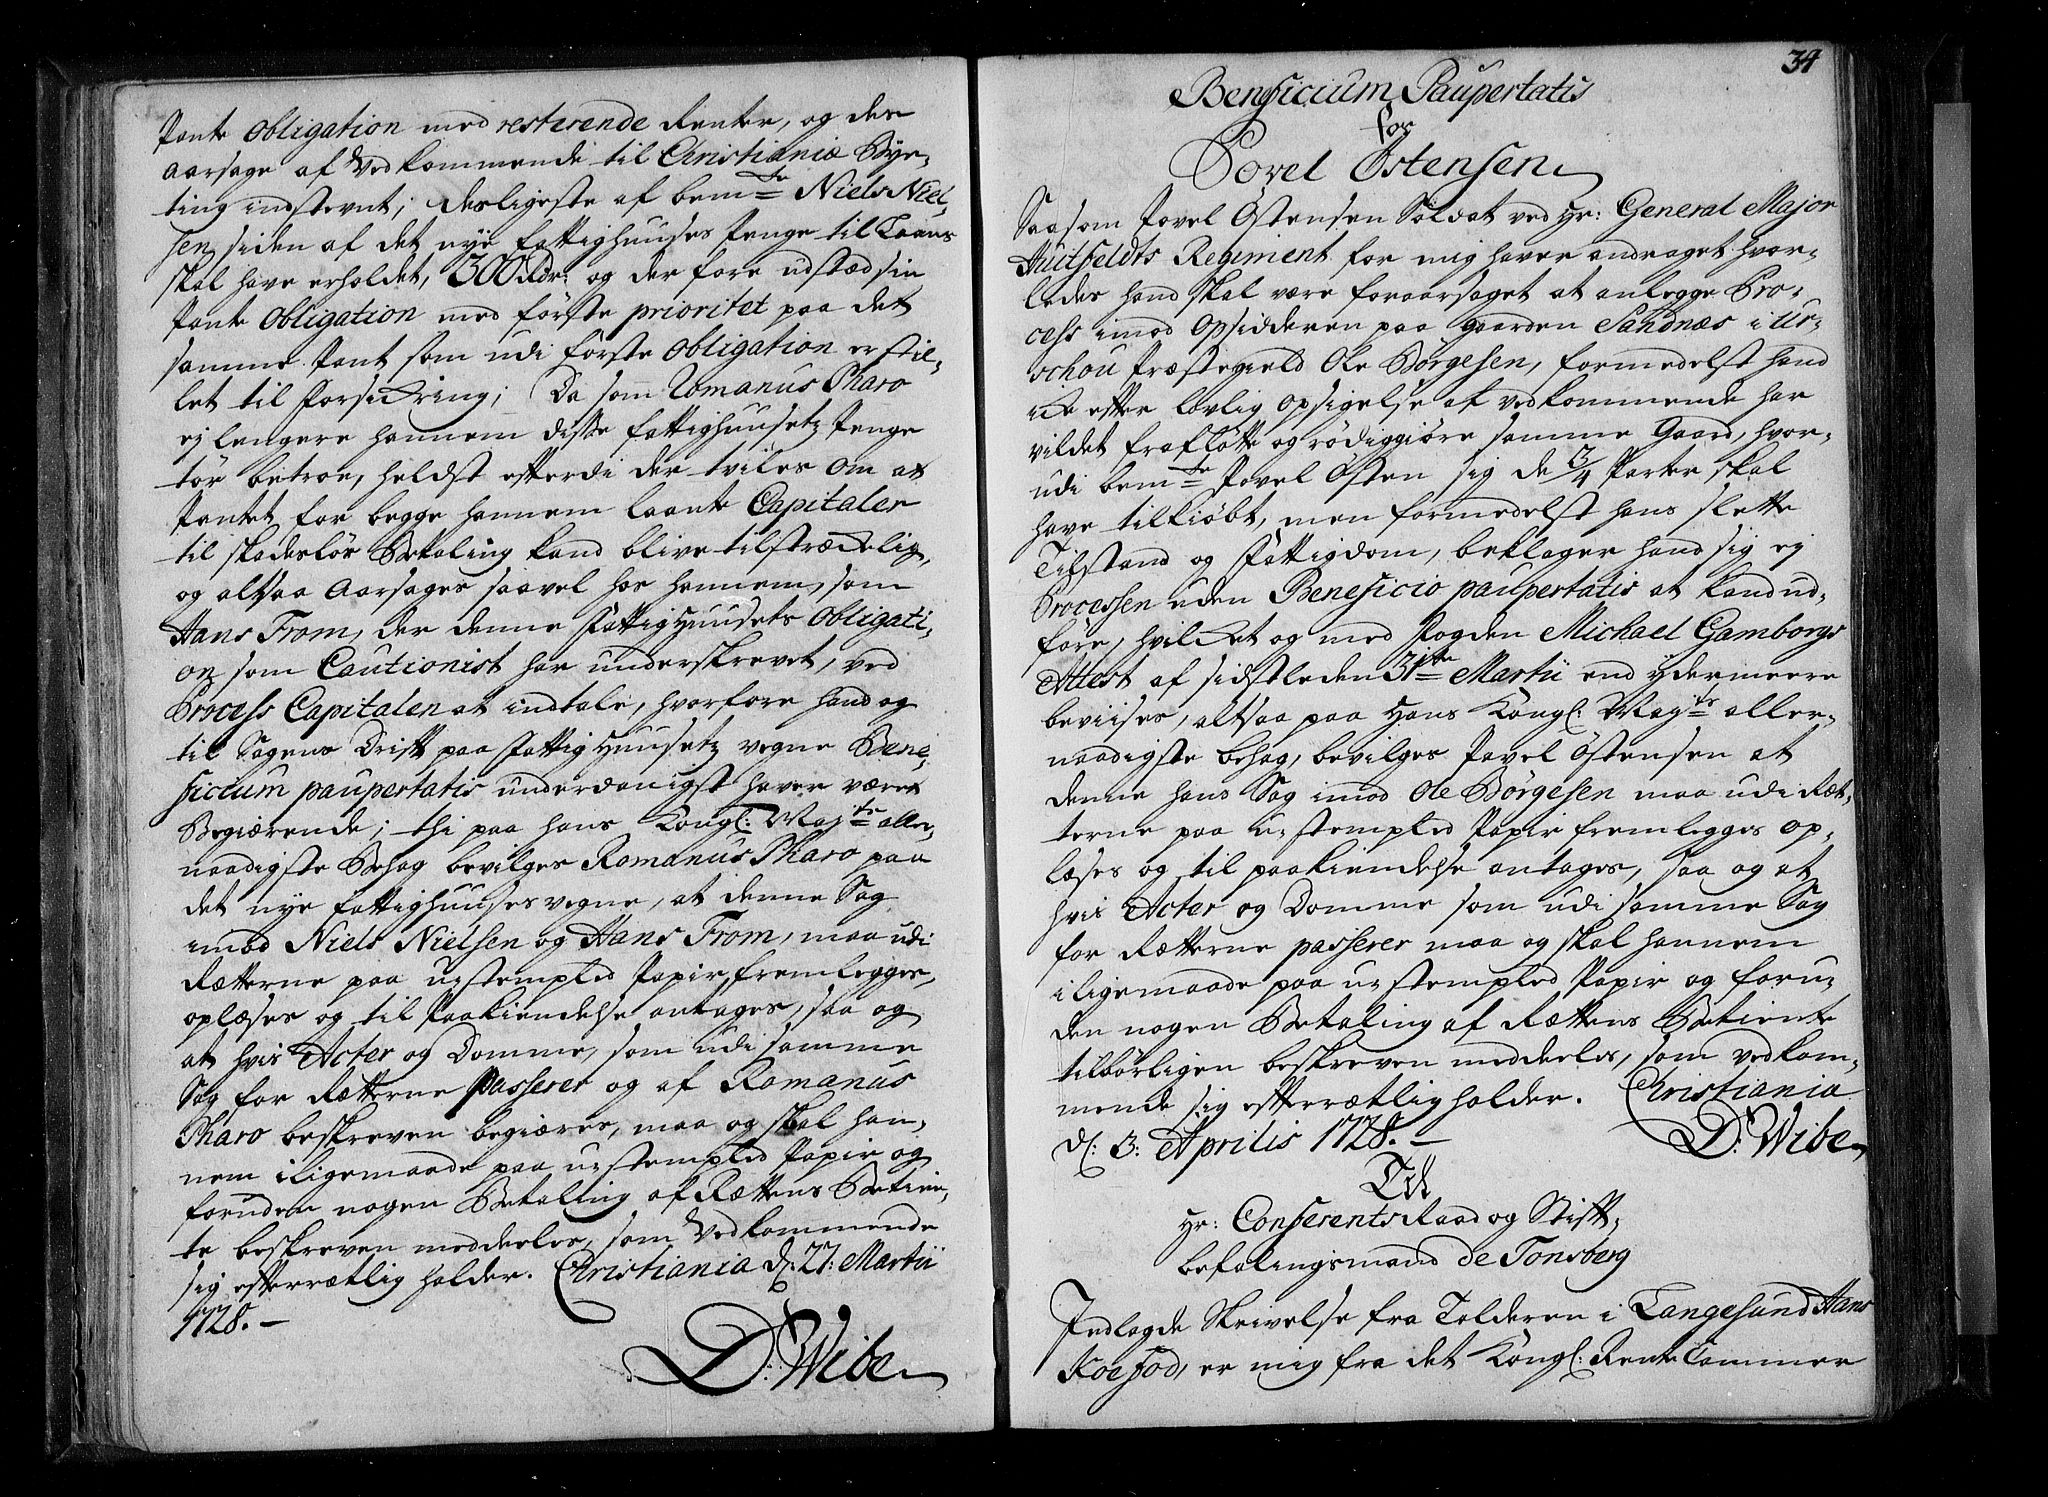 Pante Obligation med resterende Renter, og der
aarsage af Vedkommende til Christianiæ Bye-
ting indstevnt; desligeste af bem.te Niels Niel-
sen siden af det nye fattighuuses Penge til Laans
skal have erholdet, 300 Rdr: og der fore udstæd sin
Pante Obligation med første prioritet paa det
samme Pant som udi første Obligation er stil-
let til forsickring; Da som Romanus Pharo
ej lengere hannem disse fattighuusetz Penge
tør betroe, heldst efterdi der tviles om at
Pantet for begge hannem laante Capitaler
til skadesløs Betaling kand blive tilstræckelig,
og altsaa aarsages saavel hos hannem, som
Hans From, der denne Fattighuusets Obligati-
on som Cautionist har underskrevet, ved
Process Capitalen at indtale, hvorfore hand og
til Sagens Drift paa Fattighuusetz vegne Bene-
ficium paupertatis underdanigst haver været
Begiærende; thi paa Hans Kongl: May:ts aller-
naadigste Behag bevilges Romanus Pharo paa
det nye fattighuuses vegne, at denne Sag
imod Niels Nielsen og Hans From, maa udi
Rætterne paa u-stempled Papir fremlegges,
oplæses og til Paakiendelse antages, saa og
at hvis Acter og Domme, som udi samme
Sag for Rætterne passerer og af Romanus
Pharo beskreven begiæres, maa og skal han-
nem iligemaade paa u-stempled Papir og
foruden nogen Betaling af Rættens Betien-
te beskreven meddeeles, som Vedkommende
sig efterrætlig holder. Christiania d: 27: Martii
1728. —
D: Wibe
34
Beneficium Paupertatis
for
Povel Østensen
Saasom Povel Østensen Soldat ved Hr: General Major
Huitfeldts Regiment for mig haver andraget hvor-
ledes hand skal være foraarsaget at anlegge Pro-
cess imod Opsidderen paa gaarden Sandnæs i Ur-
schou Præstegield Ole Børgesen, formedelst hand
icke efter lovlig opsigelse af vedkommende har
vildet frafløtte og rødiggiøre samme Gaard, hvor-
udi bem.te Povel Østen sig de 3/4 Parter skal
have tilkiøbt, men formedelst hans slette
Tilstand og Fattigdom, beklager hand sig ej
Processen uden Beneficio paupertatis at kand ud-
føre, hvilcket og med Fogden Michael Gamborgs
Attest af sidstleden 31.te Martii end ydermeere
beviises, altsaa paa Hans Kongl: May:ts aller-
naadigste behag, bevilges Povel Østensen at
denne hans Sag imod Ole Børgesen maa udi Ræt-
terne paa u-stempled Papir fremlegges op-
læses og til paakiendelse antages, saa og at
hvis Acter og Domme som udi samme Sag
for Rætterne passerer maa og skal hannem
iligemaade paa u-stempled Papir og foru-
den nogen Betaling af Rættens Betiente
tilbørligen beskreven meddeeles, som vedkom-
mende sig efterrætlig holder. Christiania
d: 3: Aprilis 1728. —
D: Wibe
Til
Hr: Conferents Raad og Stift-
befalingsmand de Tonsberg
Indlagde Skrivelse fra Tolderen i Langesund Hans
Koefod, er mig fra det Kongl: Rente Cammer